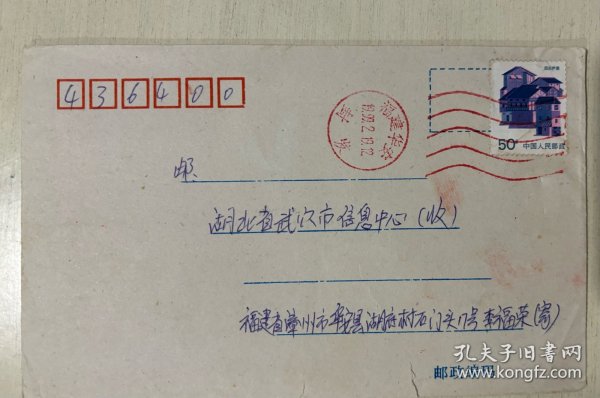 436400
四川民居
50分 中国人民邮政
福建华安
1999.2.19.12
邮
湖北省武汉市信息中心(收)
福建省漳州市华安县湖底村石门头17号 李福荣(寄)
邮政
孔夫子旧书网
www.kongfz.com